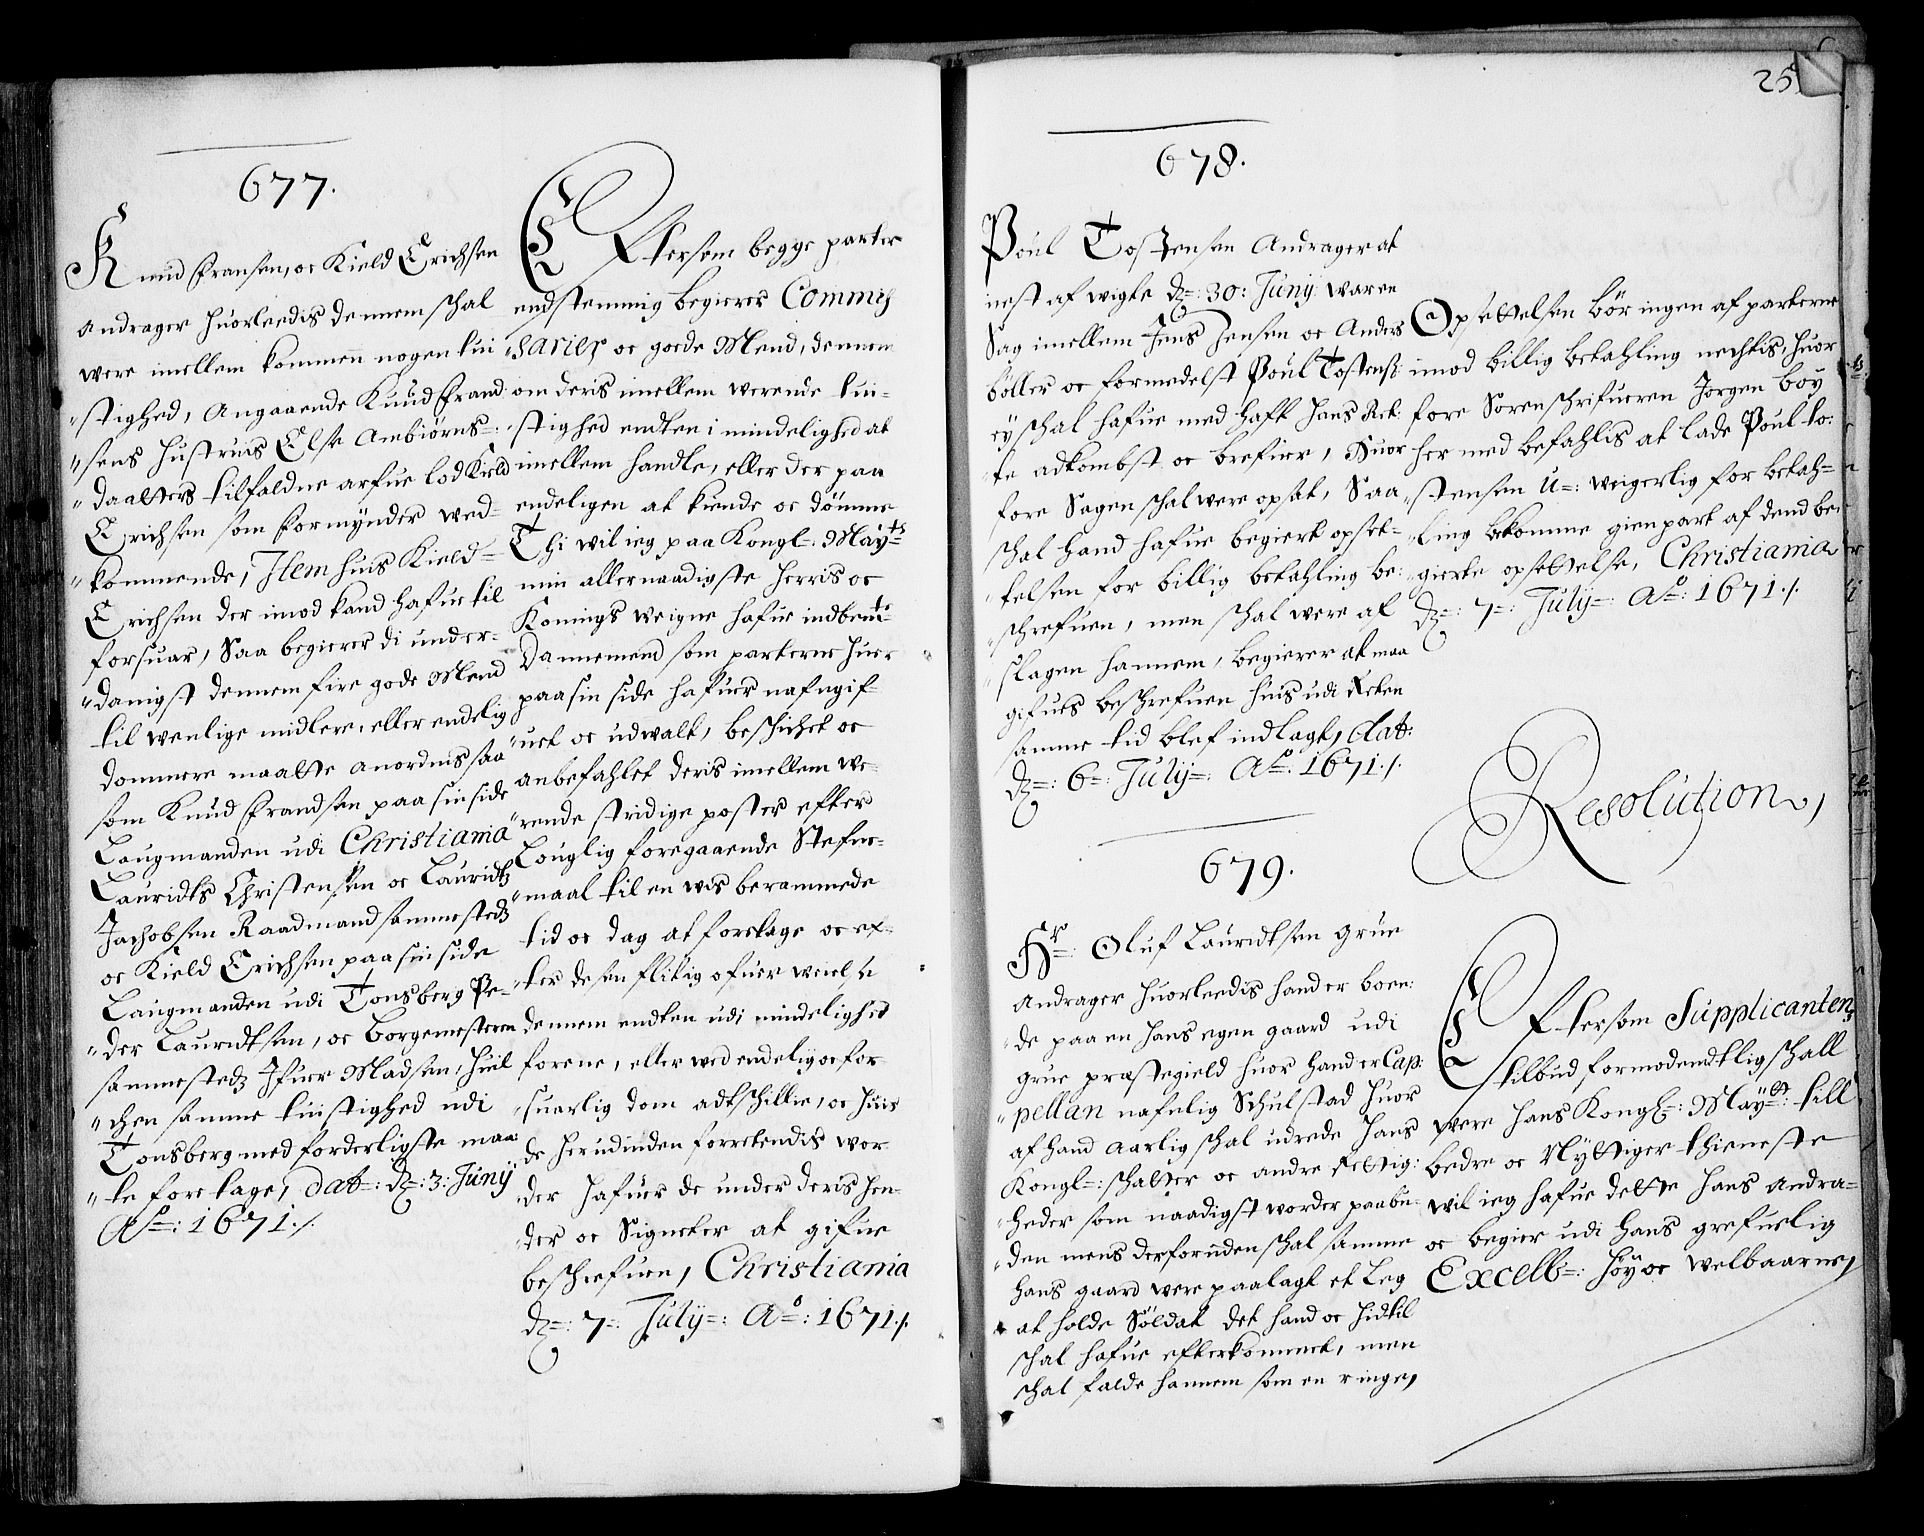 677.
Knud Fransen, oc Kield Erichsen
andrager huorleedis dennem schal
were imellem kommen nogen tui
stighed, angaaende Knud Frand
sens hustruis Else Ambiørns=
daatters tilfaldne arfue lod Kield
Erichsen som formynder wed=
kommende, Item huis Kield
Erichsen der imod kand hafue til
forsuar, Saa begierer di under=
danigst dennem fire gode Mend
til wenlige midlere, eller endelig
dommere maatte anordnis saa
som Knud Frandsen paa sin side
Laugmanden udi Christiania
Lauridts Christensen oc Lauridtz
Jachobsen Raadmand sammestedz
oc Kield Erichsen paa sin side
Laugmanden udi Tonsberg Pe=
der Lauridtsen, oc Borgemesteren
sammestedz Ifuer Madsen, huil
chen samme tuistighed udi
Tonsberg med forderligste maa
te foretage, dat=: dz=: 3: Junij
Ao=: 1671./.
Eftersom begge parter
endstemmig begierer Commis
sarier oc goede Mend, dennem
om deris imellem werende tui=
stighed endten i mindelighed at
imellem handle, eller der paa
endeligen at kiende oc dömme
Thi wil ieg paa Kongl=: Mayts
min allernaadigste herris oc
Konings weigne hafue indbemte
Dannemend som parterne huer
paa sin side hafuer nafngif=
uet oc udwalt, beschichet oc
anbefahlet deris imellem we=
rende stridige poster efter
Louglig foregaaende Stefne=
maal til en wis berammede
tid oc dag at foretage oc ef=
ter desen flitig ofuer weielse
dennem endten udi mindelighed
forene, eller wed endelig oc for
suarlig dom adtschillie, oc huis
de herudinden forretendis wor=
der hafuer de under deris hen=
der oc Signeter at gifue
beschrefuen, Christiania
dz=: 7=: July=: Ao=: 1671./.
25
678.
Poul Tostensen Andrager at
nest afwigte dz=: 30: Juny waren
Sag imellem Jens Jensen oc Anders
böller oc formedelst Poul Tostens:
ey schal hafue med haft hans Ret=
te adkombst oc brefuer, Huor
fore Sagen schal were opsat, Saa
schal hand hafue begiert opset=
telsen for billig betahling be=
schrefuen, men schal were af
slagen hannem, begierer at maa
gifues beschrefuen huis udi Reten
samme tid blef indlagt, dat:
dz=: 6=: July=: Ao=: 1671./.
Opsettelsen bör ingen af parterne
imod billig betahling nechtis, huor
fore Sorenschrifueren Jorgen Boy
her med befahlis at lade Poul To:
stensen u=: weigerlig for betah=
ling bekomme gienpart af dend be=
gierte opsettelse, Christiania
dz=: 7=: July=: Ao=: 1671./.
Resolution,
679.
Hr=: Oluf Lauridtsen Grue
Andrager huorleedis hand er boen:
de paa en hans egen gaard udi
Grue præstegield huor hand er Cap:
pellan nafnlig Schulstad huor
af hand aarlig schal udrede hans
Kongl=: schatter oc andre Rettig:
heder som naadigst worder paabu=
den mens derforuden schal samme
hans gaard were paalagt et Leg
at holde Söldat det hand oc hidtil
schal hafue efterkommet, men
schal falde hannem som en ringe,
Eftersom Supplicanten
tilbud formodendtlig schall
were hans Kongl=: Mayst=: till
bedre oc Nyttiger thieneste
wil ieg hafue dette hans andra=
oc begier udi hans grefuelig
Excell=: höy oc welbaarne,